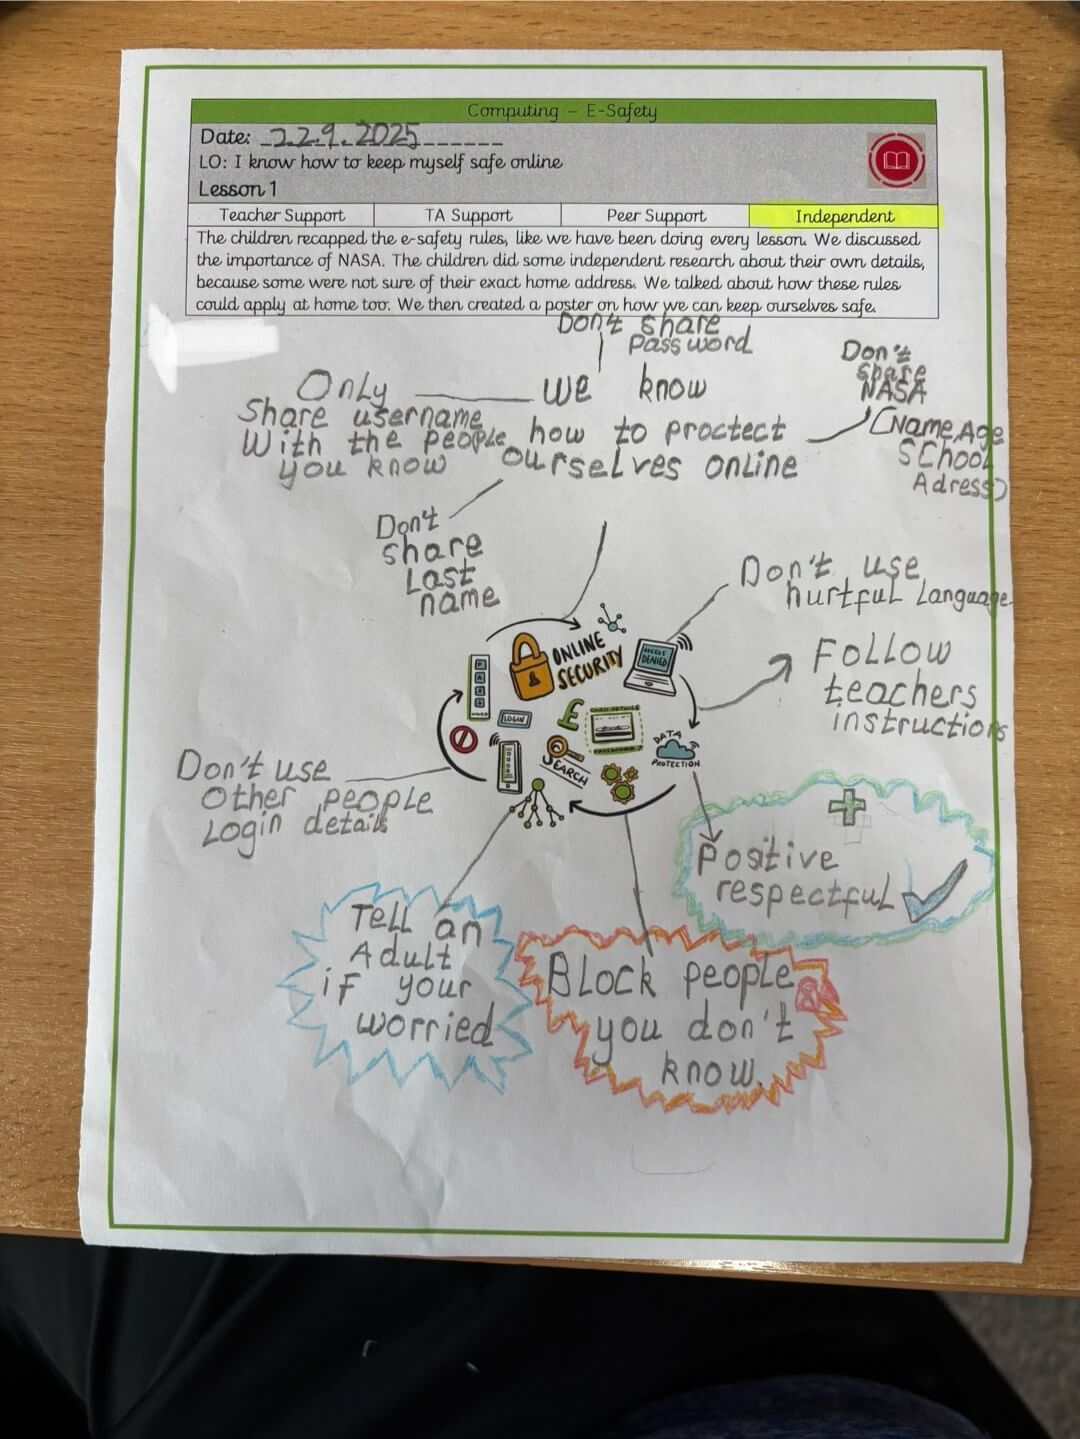 Computing – E-Safety
Date: 22.9.2025
LO: I know how to keep myself safe online
Lesson 1
Teacher Support
TA Support
Peer Support
Independent
The children recapped the e-safety rules, like we have been doing every lesson. We discussed
the importance of NASA. The children did some independent research about their own details,
because some were not sure of their exact home address. We talked about how these rules
could apply at home too. We then created a poster on how we can keep ourselves safe.
Don't share
Password
we know
how to proctect
ourselves online
Only
Share username
With the people
you know
Don't
share
NASA
(Name, Age
School
Adress)
Don't
share
Last
name
Don't use
hurtful Language
Follow
teachers
instructions
ONLINE
SECURITY
ACCESS
DENIED
LOGIN
£
CARD DETAILS
PASSWORD?
DATA
PROTECTION
SEARCH
Don't use
Other people
Login details
Positive
respectful
Tell an
Adult
if your
worried
Block people
you don't
know.